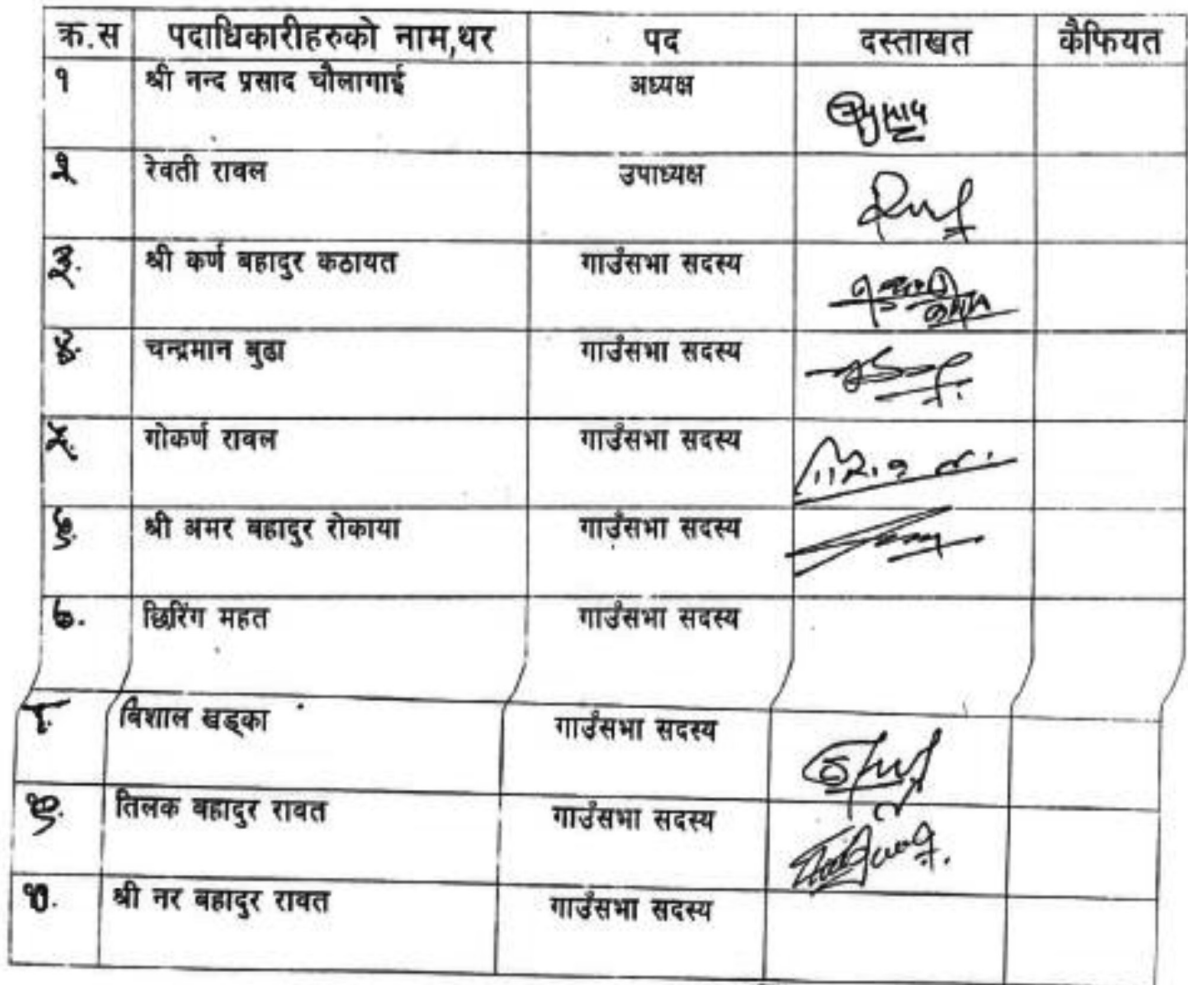 क्र.स पदाधिकारीहरुको नाम,थर पद दस्ताखत कैफियत
१ श्री नन्द प्रसाद चौलागाई अध्यक्ष
२ रेवती रावल उपाध्यक्ष
३. श्री कर्ण बहादुर कठायत गाउँसभा सदस्य
४. चन्द्रमान बुढा गाउँसभा सदस्य
५. गोकर्ण रावल गाउँसभा सदस्य
६. श्री अमर बहादुर रोकाया गाउँसभा सदस्य
७. छिरिंग महत गाउँसभा सदस्य
८. बिशाल खड्का गाउँसभा सदस्य
९. तिलक बहादुर रावत गाउँसभा सदस्य
१०. श्री नर बहादुर रावत गाउँसभा सदस्य